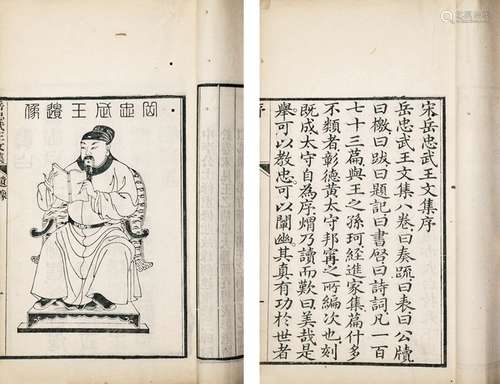 宋岳忠武王文集序
岳忠武王文集八卷曰奏疏曰表曰公牘
曰檄曰跋曰題記曰書啓曰詩詞凡一百
七十三篇與王之孫珂經進家集篇什多
不類者彰德黃太守邦甯之所編次也刻
既成太守自為序煟乃讀而歎曰美哉是
舉可以教忠可以闡幽其真有功於世者
岳忠武王遺像
岳忠武王文集
遺像